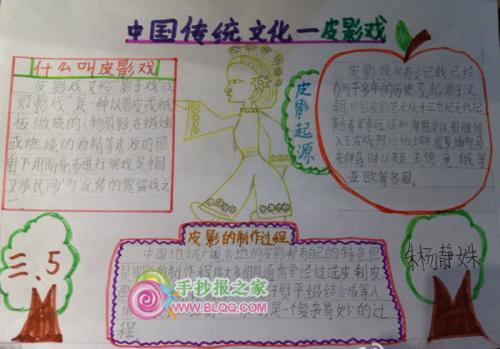 中国传统文化一皮影戏
什么叫皮影戏
皮影戏又称"影子戏"或
"灯影戏"是一种以兽皮或纸
板做成的人物剪影在蜡烛
或燃烧的酒精等光源的照
射下用隔亮布进行演戏是中国
汉族民间广为流传的傀儡戏之
一
皮影起源
皮影戏从有文记载已经
有两千多年的历史
起源于汉
中国皮影艺术从十三世纪元代起
随着军事远征和海陆交往相继传
入了波斯阿拉伯土耳其暹罗缅甸马
来群岛日本以及英法德意俄等
亚欧等各国。
皮影的制作过程
中国地域广阔各地的皮影都有自己的特色但
是皮影的制作程序大多相同通常经过选皮制皮
画
熨平缀结合成等八
是一个复杂奇妙的过
程
三、5
杨静姝
手抄报之家
WWW.BLQQ.COM